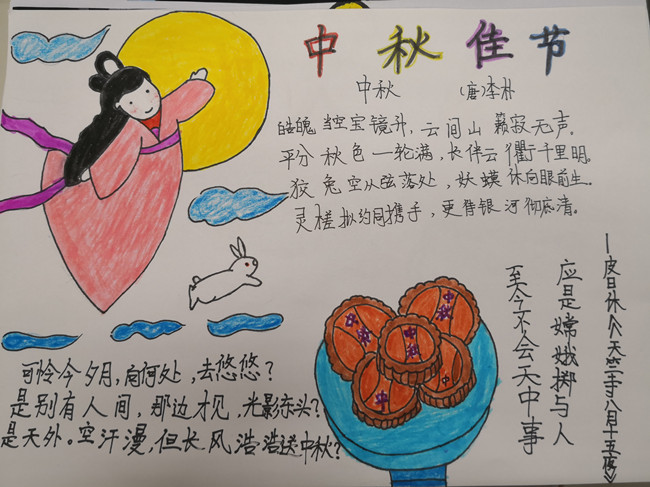 中秋佳节
中秋 (唐)李朴
皓魄当空宝镜升,云间山籁寂无声。
平分秋色一轮满,长伴云衢千里明。
狡兔空从弦落处,妖蟆休向眼前生。
灵槎拟约同携手,更待银河彻底清。
至今不会天中事
应是嫦娥掷与人
—皮日休《天竺寺八月十五夜》
中秋
中秋
中秋
中
中
可怜今夕月,向何处,去悠悠?
是别有人间,那边才见,光影东头?
是天外。空汗漫,但长风浩浩送中秋?